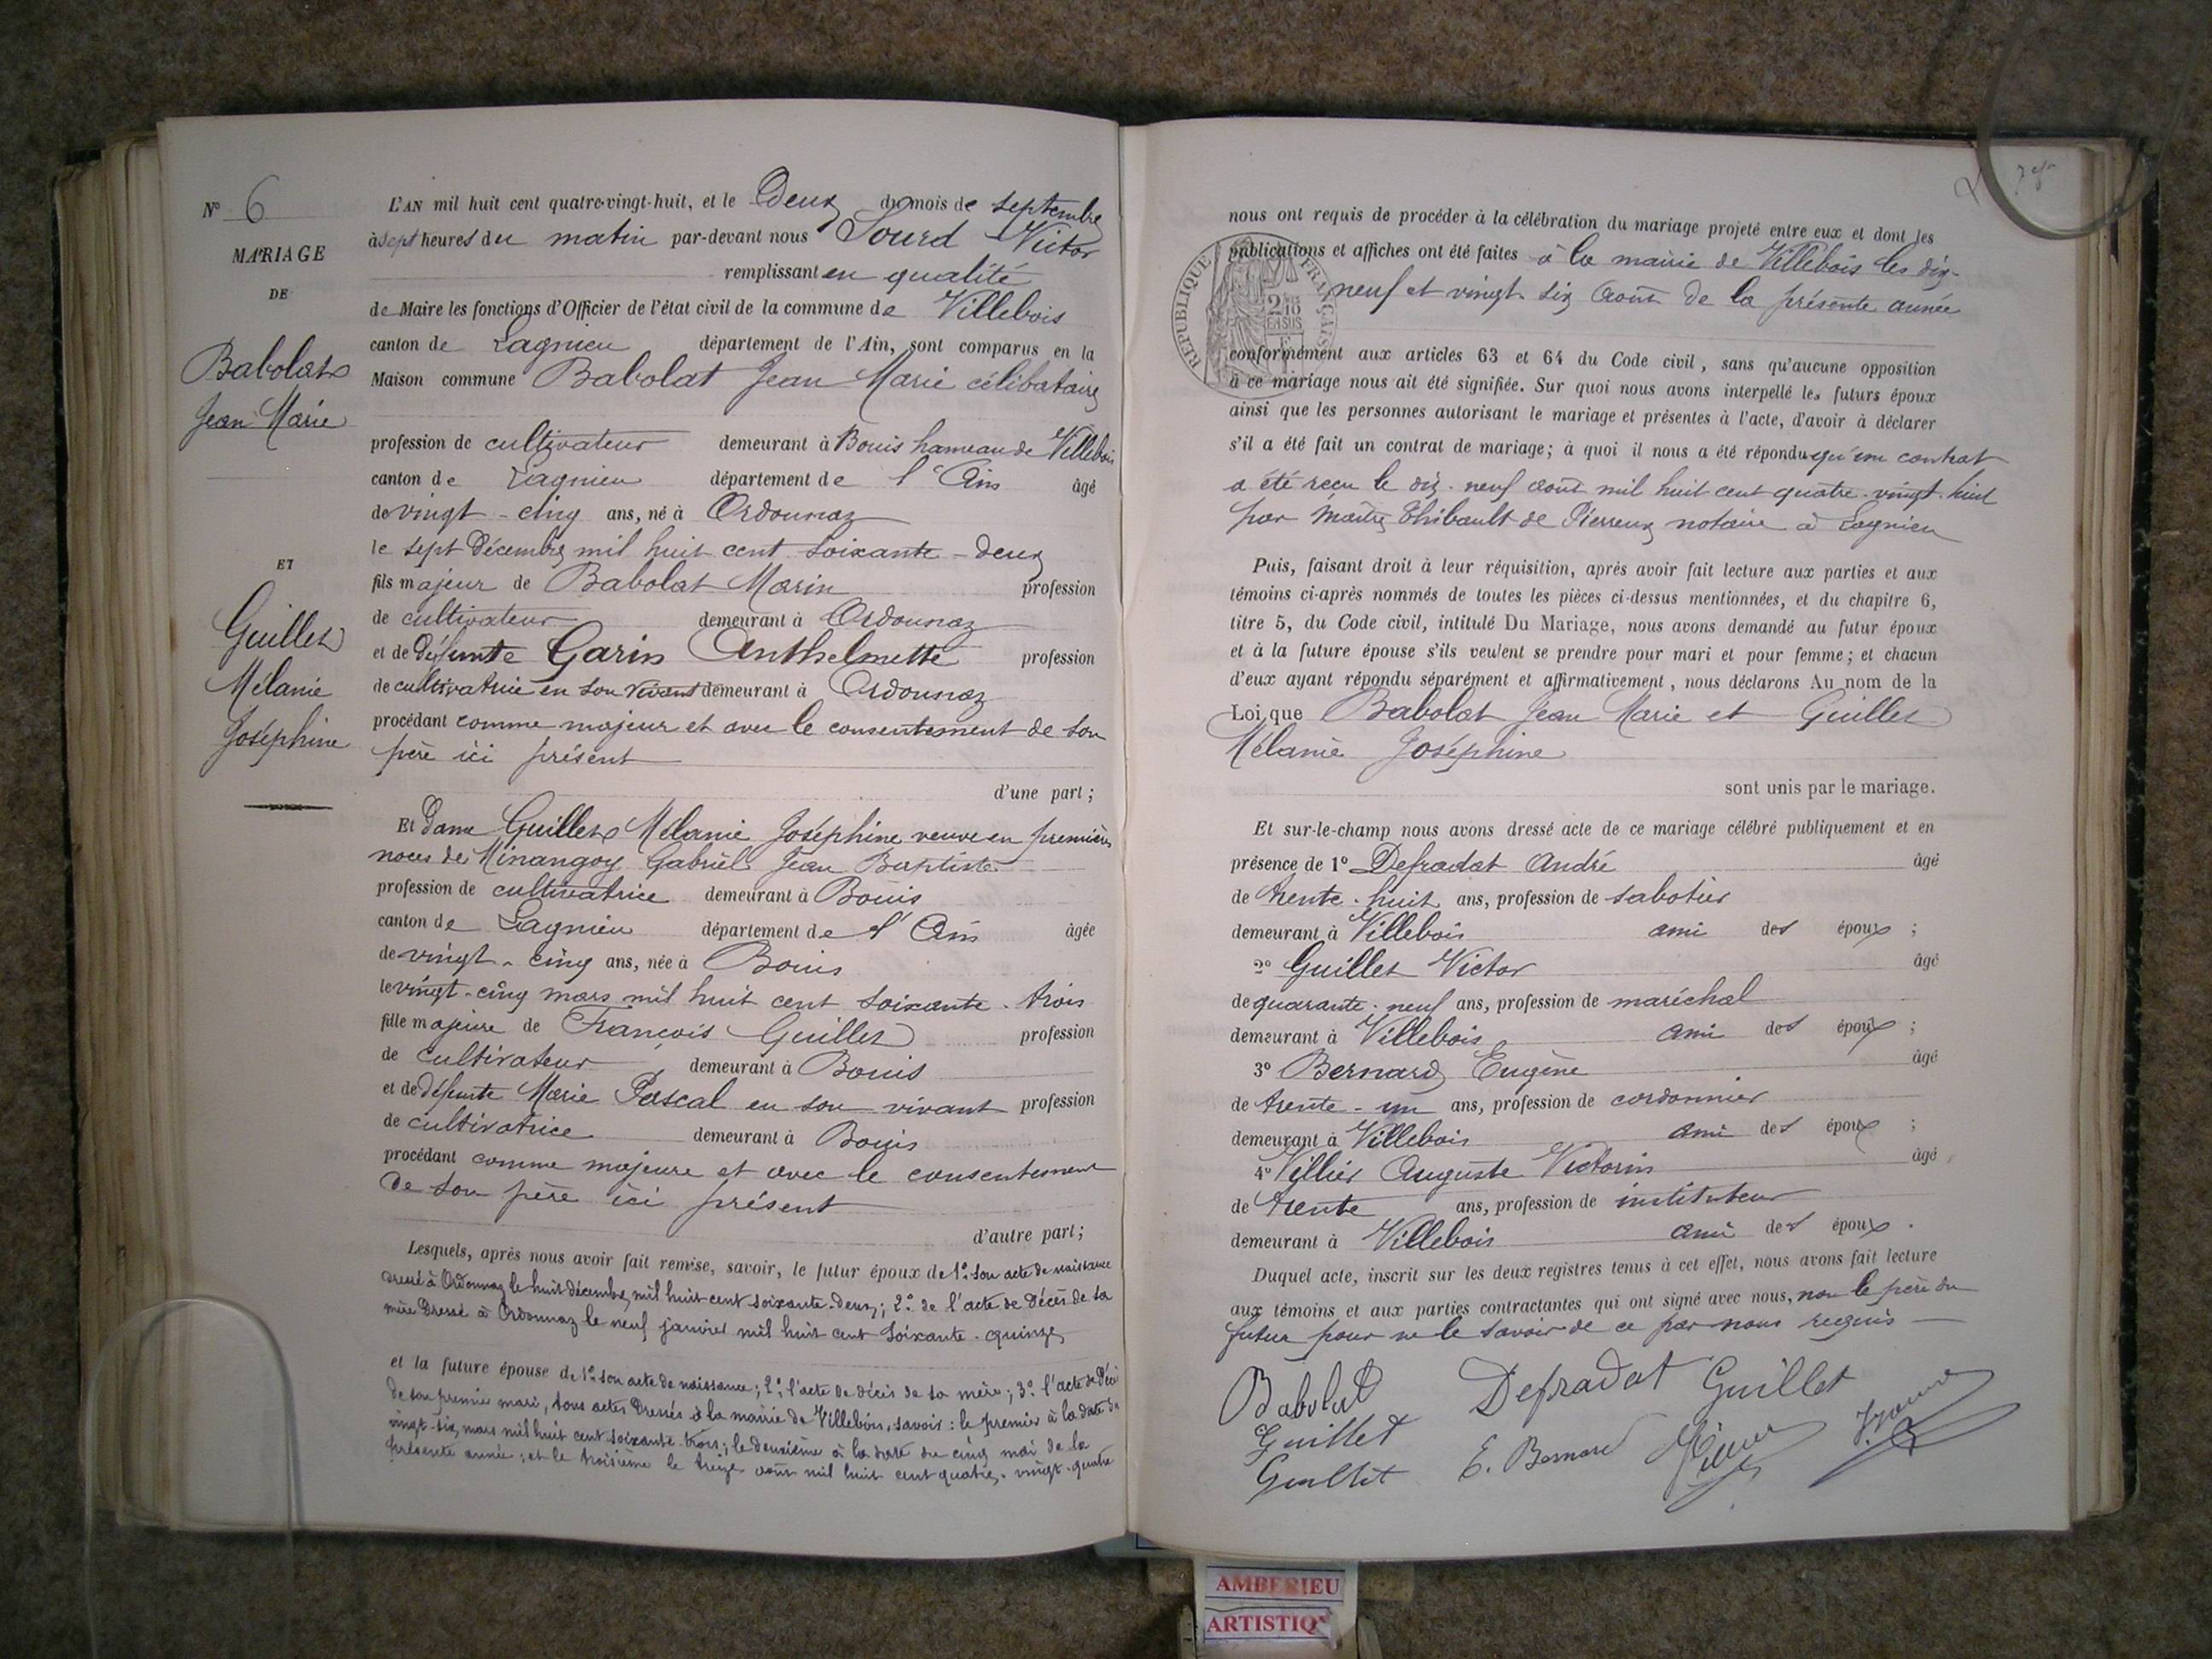 N° 6
MARIAGE
DE
Babolat
Jean Marie
ET
Guillet
Mélanie
Joséphine
L'AN mil huit cent quatre-vingt-huit, et le Deux du mois de septembre
à sept heures du matin par-devant nous Sourd Victor
remplissant en qualité
de Maire les fonctions d'Officier de l'état civil de la commune de Villebois
canton de Lagnieu département de l'Ain, sont comparus en la
Maison commune Babolat Jean Marie célibataire
profession de cultivateur demeurant à Bouis hameau de Villebois
canton de Lagnieu département de l'Ain âgé
de vingt-cinq ans, né à Ordonnaz
le sept Décembre mil huit cent soixante-deux
fils majeur de Babolat Marin profession
de cultivateur demeurant à Ordonnaz
et de défunte Garin Anthelmette profession
de cultivatrice en son vivant demeurant à Ordonnaz
procédant comme majeur et avec le consentement de son
père ici présent
d'une part;
Et Dame Guillet Mélanie Joséphine veuve en premières
noces de Minangoy Gabriel Jean Baptiste
profession de cultivatrice demeurant à Bouis
canton de Lagnieu département de l'Ain âgée
de vingt-cinq ans, née à Bouis
le vingt-cinq mars mil huit cent soixante-trois
fille majeure de François Guillet profession
de cultivateur demeurant à Bouis
et de défunte Marie Pascal en son vivant profession
de cultivatrice demeurant à Bouis
procédant comme majeure et avec le consentement
de son père ici présent
d'autre part;
Lesquels, après nous avoir fait remise, savoir, le futur époux de 1° son acte de naissance
dressé à Ordonnaz le huit décembre mil huit cent soixante-deux; 2° de l'acte de décès de sa
mère dressé à Ordonnaz le neuf janvier mil huit cent soixante-quinze
et la future épouse de 1° son acte de naissance; 2° l'acte de décès de sa mère; 3° l'acte de décès
de son premier mari, tous actes dressés à la mairie de Villebois, savoir: le premier à la date du
vingt-six mars mil huit cent soixante trois; le deuxième à la date du cinq mai de la
présente année; et le troisième le treize août mil huit cent quatre-vingt-quatre
nous ont requis de procéder à la célébration du mariage projeté entre eux et dont les
publications et affiches ont été faites à la mairie de Villebois les dix-
neuf et vingt six août de la présente année
RÉPUBLIQUE FRANÇAISE
conformément aux articles 63 et 64 du Code civil, sans qu'aucune opposition
à ce mariage nous ait été signifiée. Sur quoi nous avons interpellé les futurs époux
ainsi que les personnes autorisant le mariage et présentes à l'acte, d'avoir à déclarer
s'il a été fait un contrat de mariage; à quoi il nous a été répondu qu'un contrat
a été reçu le dix-neuf août mil huit cent quatre-vingt-huit
par Maître Thibault de Pierreux notaire à Lagnieu
Puis, faisant droit à leur réquisition, après avoir fait lecture aux parties et aux
témoins ci-après nommés de toutes les pièces ci-dessus mentionnées, et du chapitre 6,
titre 5, du Code civil, intitulé Du Mariage, nous avons demandé au futur époux
et à la future épouse s'ils veulent se prendre pour mari et pour femme; et chacun
d'eux ayant répondu séparément et affirmativement, nous déclarons Au nom de la
Loi que Babolat Jean Marie et Guillet
Mélanie Joséphine
sont unis par le mariage.
Et sur-le-champ nous avons dressé acte de ce mariage célébré publiquement et en
présence de 1° Defradat André âgé
de trente-huit ans, profession de sabotier
demeurant à Villebois ami des époux;
2° Guillet Victor âgé
de quarante-neuf ans, profession de maréchal
demeurant à Villebois ami des époux;
3° Bernard Eugène âgé
de trente-un ans, profession de cordonnier
demeurant à Villebois ami des époux;
4° Villier Auguste Victorin âgé
de trente ans, profession de instituteur
demeurant à Villebois ami des époux.
Duquel acte, inscrit sur les deux registres tenus à cet effet, nous avons fait lecture
aux témoins et aux parties contractantes qui ont signé avec nous, non le père du
futur pour ne le savoir de ce par nous requis
Babolat Defradat Guillet
Guillet E. Bernard
Guillet
AMBERIEU
ARTISTIQ